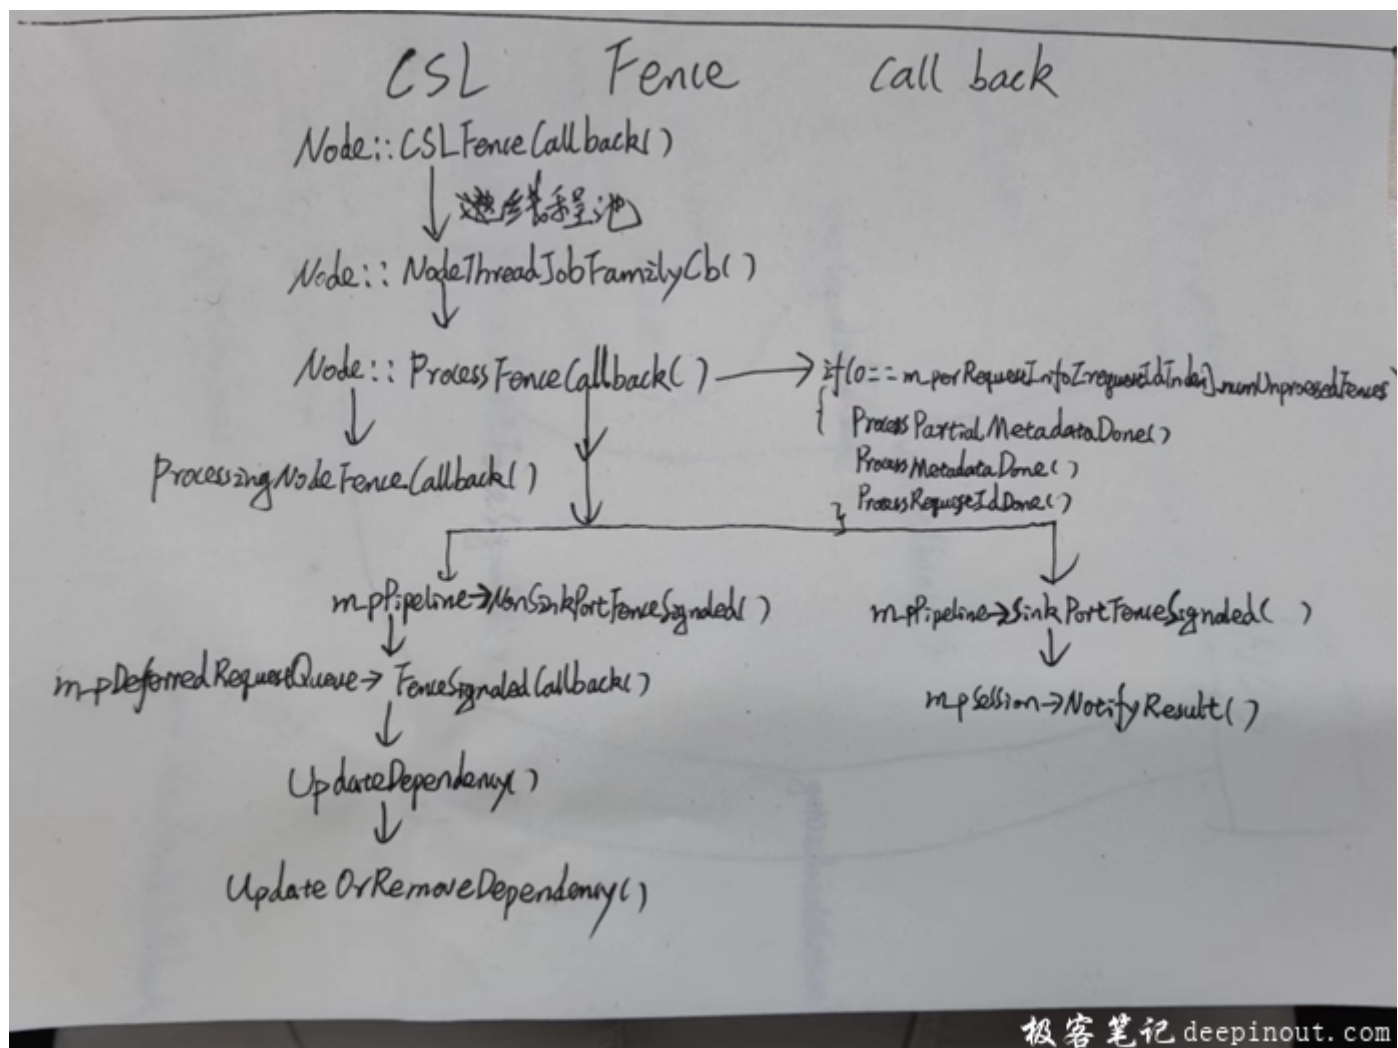 CSL Fence Call back
Node::CSLFenceCallback()
进线程池
Node::NodeThreadJobFamilyCb()
Node::ProcessFenceCallback() → if(0==m_perRequestInfo[requestIdIndex].numUnprocessedFences
{
ProcessPartialMetadataDone()
ProcessMetadataDone()
ProcessingNodeFenceCallback()
ProcessRequestIdDone()
}
m_pPipeline→NonSinkPortFenceSignaled()
m_pPipeline→SinkPortFenceSignaled( )
m_pDeferredRequestQueue→FenceSignaledCallback()
m_pSession→NotifyResult()
UpdateDependency()
UpdateOrRemoveDependency()
极客笔记 deepinout.com